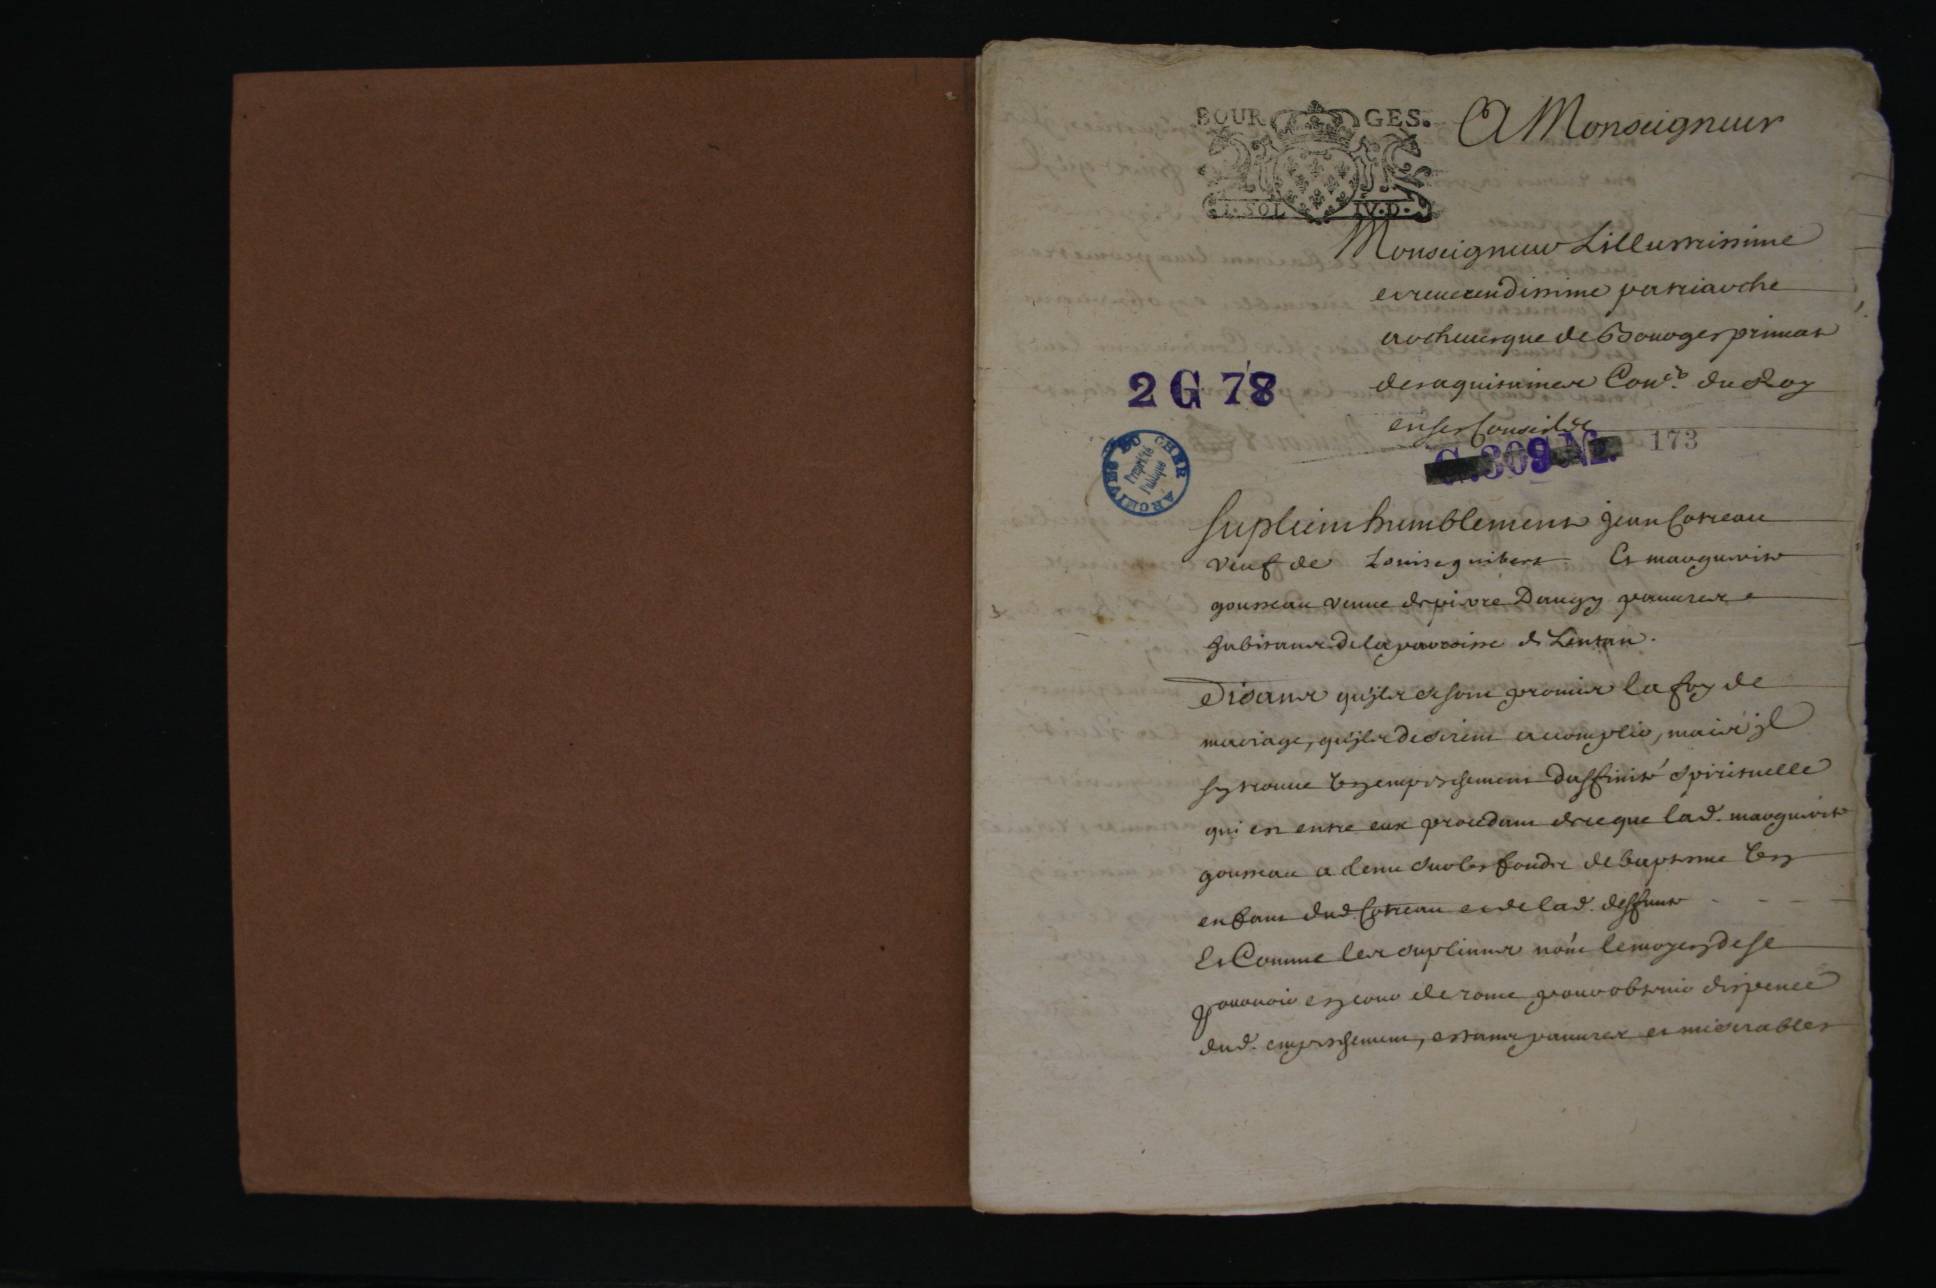 BOURGES.
I. SOL IV. D.
A Monseigneur
Monseigneur Lillustrissime
et reuerendissime patriarche
archeuesque de Bourges primat
des aquitaines Con.er du Roy
en ses Conseil &
2 G 78
G. 309 NL.
173
ARCHIVES DU CHER
Propriété
Publique
suplient humblement jean Cotreau
veuf de Louise guibert Et marguerite
gousseau veuue de pierre Daugy pauures
habitans de la parroisse de Lentan.
Disant quils se sont promis la foy de
mariage, quils desirent acomplir, mais jl
sy trouue un empeschement daffinité spirituelle
qui est entre eux procedant de ce que lad. marguerite
gousseau a tenu sur les fonds de baptesme un
enfant dud. Cotreau et de lad. deffunte
Et Comme les suplians nont le moyen de se
pouruoir en cour de rome pour obtenir dispence
dud. empeschement, estant pauures et miserables